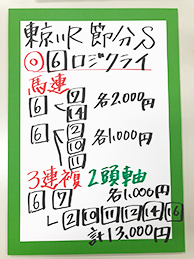 東京11R 節分S
◎ 6 ロジクライ
馬連
6 7 14 各2,000円
6 2 10 11 各1,000円
3連複 2頭軸
6 7 各1,000円
2 10 11 12 14 16
計13,000円